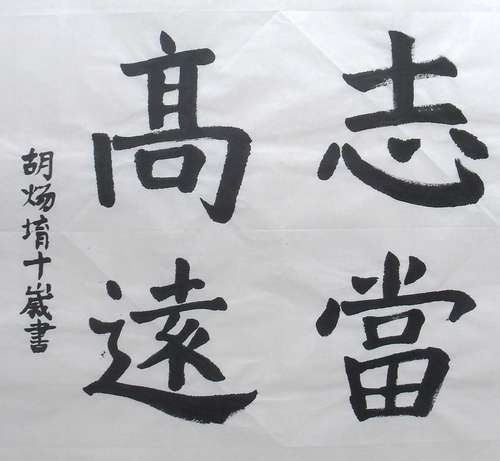 志當
髙遠
胡炀堉十歲書